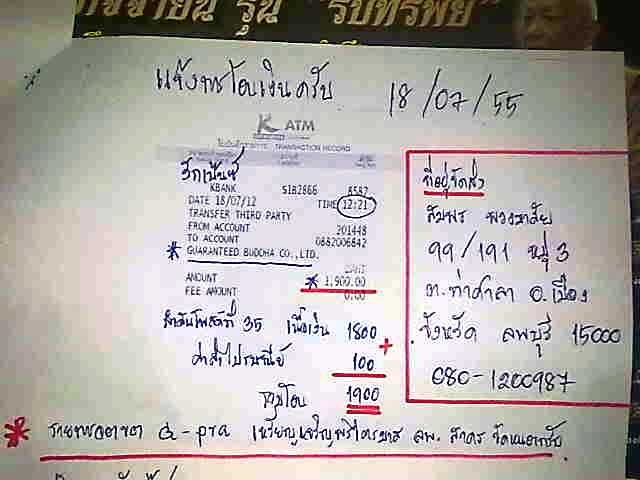 รุ่น "รับทรัพย์"
แจ้งการโอนเงินครับ 18/07/55
K ATM
TRANSACTION RECORD
KBANK S1B2866 8587
DATE 18/07/12 TIME 12:21
TRANSFER THIRD PARTY
FROM ACCOUNT 201448
TO ACCOUNT 0882006842
* GUARANTEED BUDDHA CO., LTD.
AMOUNT * 1,900.00
FEE AMOUNT 0.00
ลำดับโพสต์ที่ 35 เนื้อเงิน 1800
+
ค่าส่งไปรษณีย์ 100
รวมโอน 1900
ที่อยู่จัดส่ง
สมพร
99/191 หมู่ 3
ต. ท่าศาลา อ. เมือง
จังหวัด ลพบุรี 15000
080-1200987
* รายการจาก G-pra เหรียญเจริญพรไตรมาส ลพ. สาคร วัดหนองกรับ